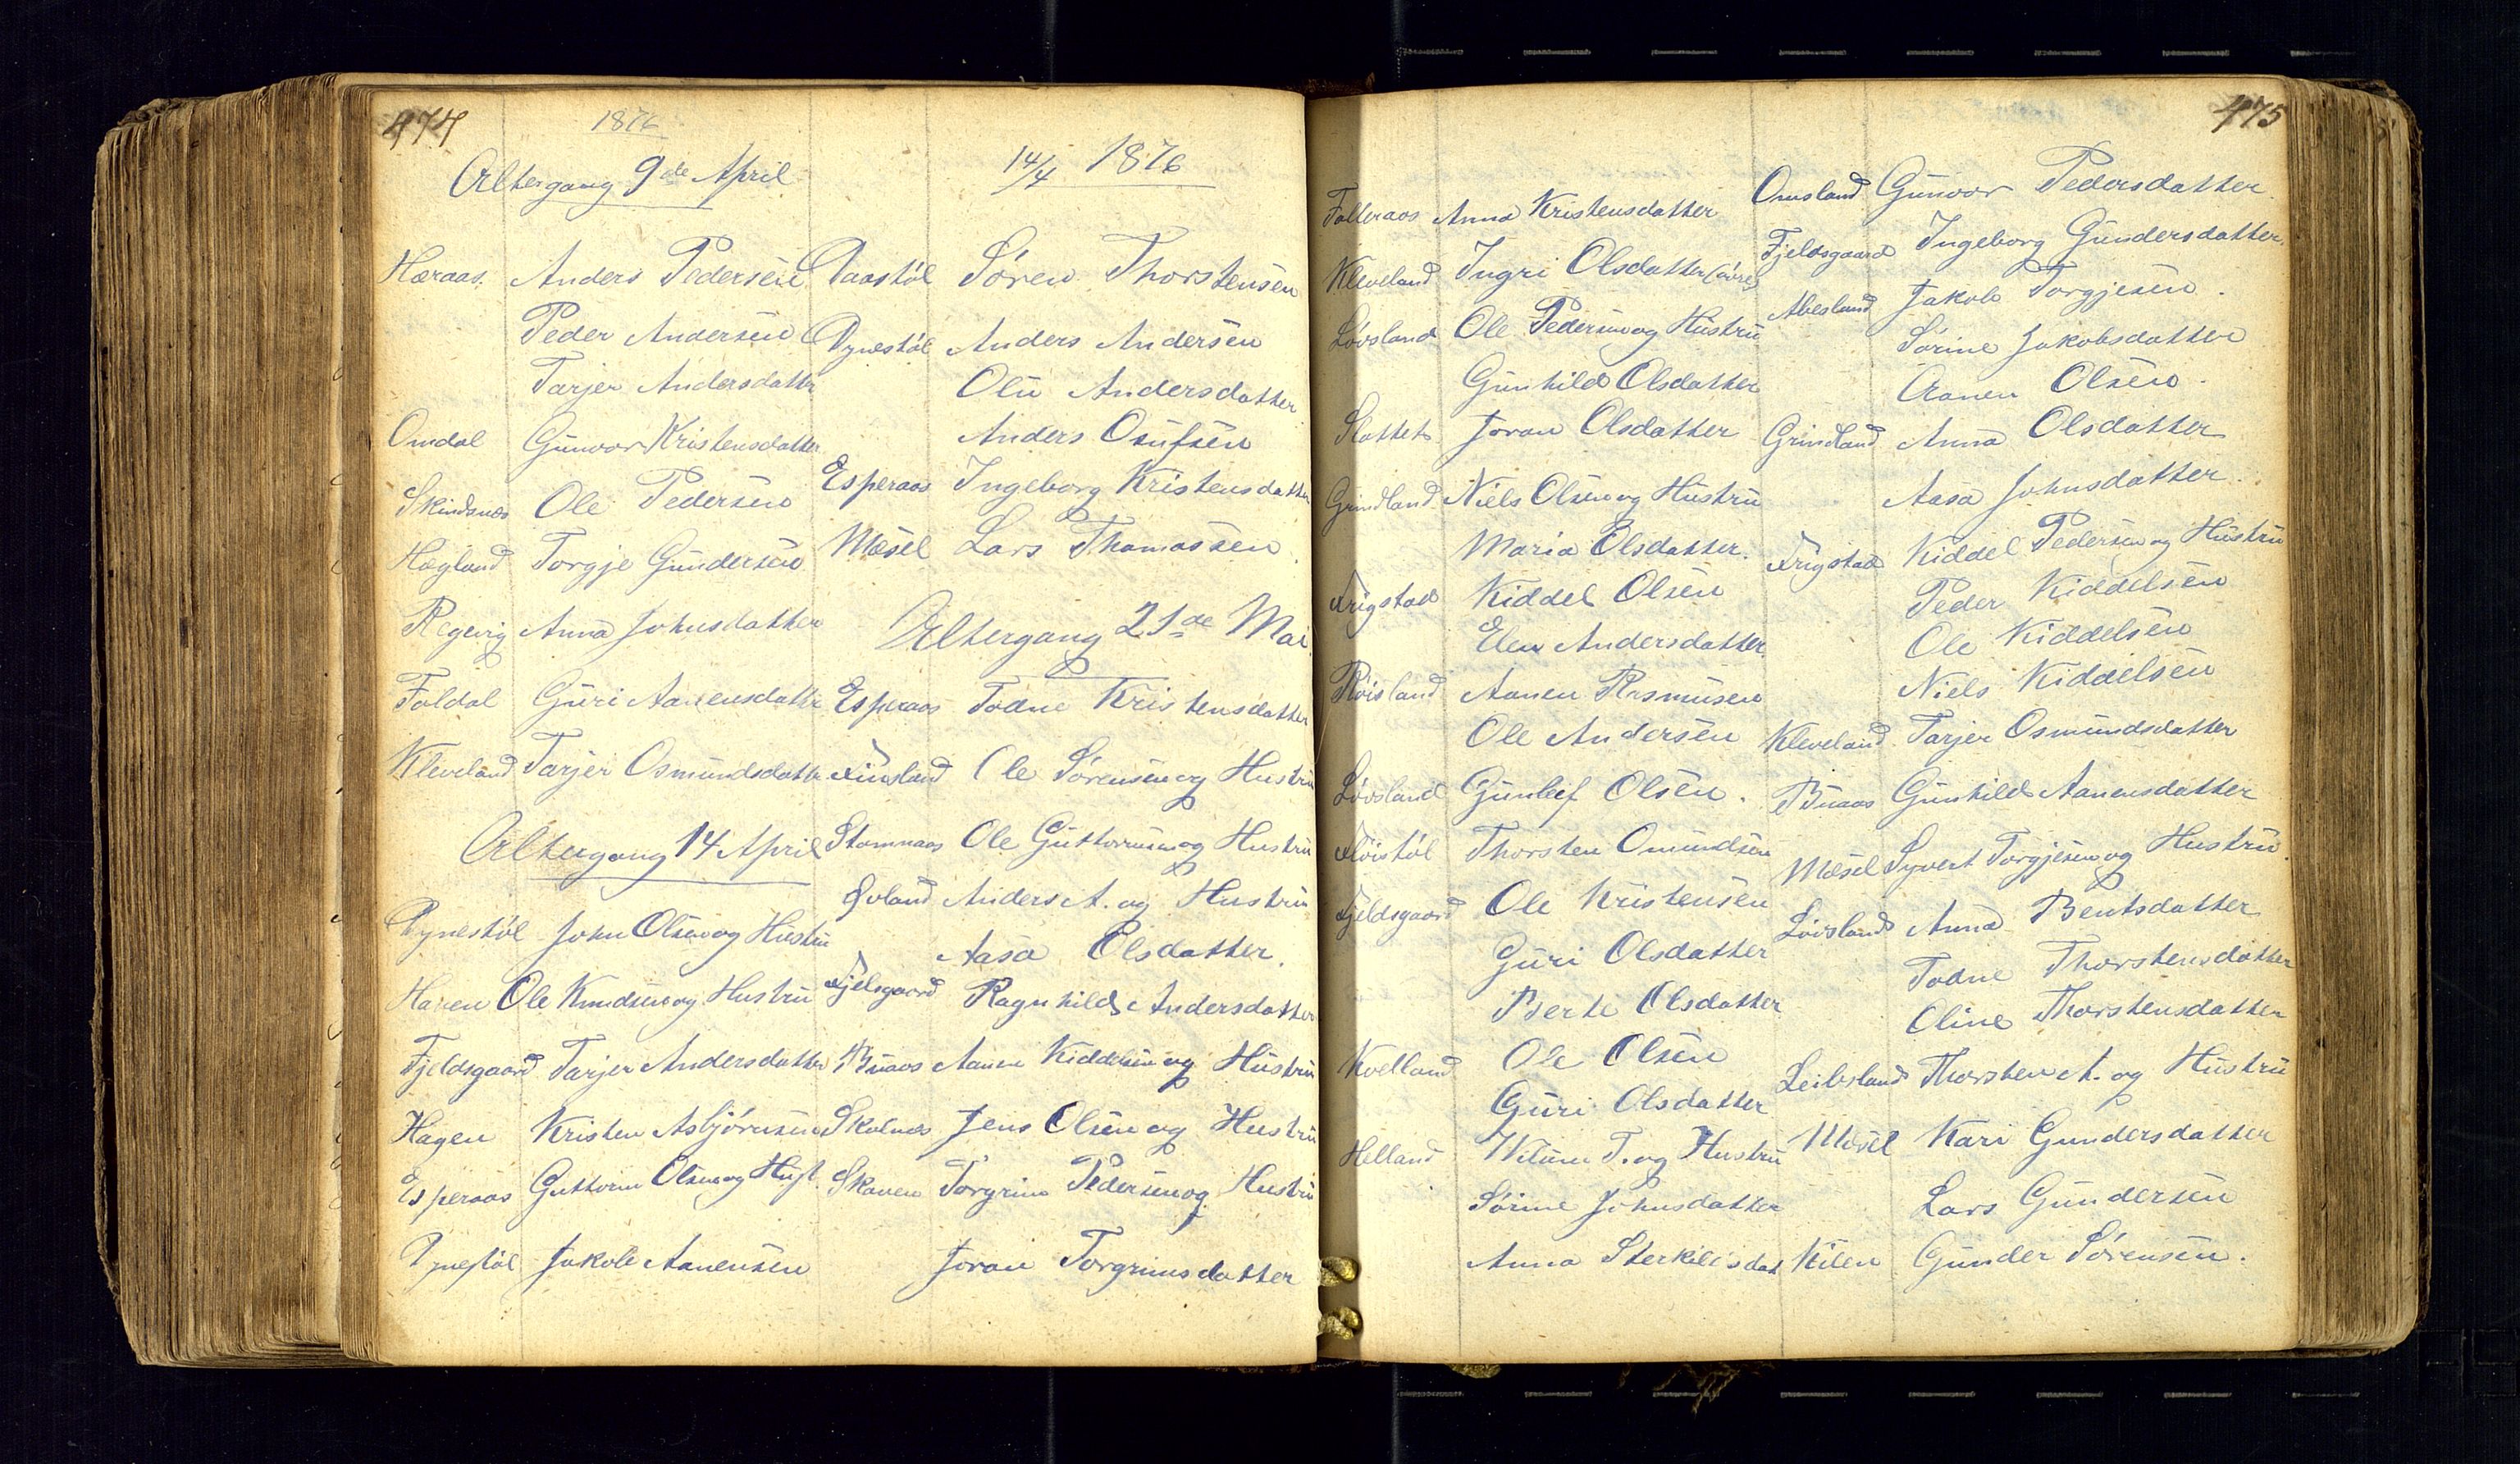 474
1876
Altergang 9de April
Høraas. Anders Pedersen
Peder Andersen
Tarjer Andersdatter
Omdal Gunvor Kristensdatter
Skindsnes Ole Pedersen
Høgland Torgje Gundersen
Regevig Anna Johnsdatter
Foldal Guri Aanensdatter
Kleveland Tarjer Osmundsdatter
Altergang 14 April
Pynestøl John Olsen og Hustru
Haven Ole Knudsen og Hustru
Fjeldsgaard Tarjer Andersdatter
Hagen Kristen Asbjørnsen
Esperaas Guttorm Olsen og Hust.
Pynestøl Jakob Aanensen
14/4 1876
Paastøl Søren Thorstensen
Pynestøl Anders Andersen
Olu Andersdatter
Anders Osufsen
Esperaas Ingeborg Kristensdatter
Mæsel Lars Thomassen
Altergang 21de Mai
Esperaas Todne Kristensdatter
Finsland Ole Sørensen og Hustru
Stomnaas Ole Guttormsen og Hustru
Anders A. og Hustru
Aasa Olsdatter.
Fjelsgaard Ragnhild Andersdatter
Buaas Aanen Kiddelsen og Hustru
Skolnes Jens Olsen og Hustru
Skaven Torgrim Pedersen og Hustru
Joran Torgrimsdatter
475
Folleraas Anna Kristensdatter
Kleveland Ingri Olsdatter (øvre)
Løvsland Ole Pedersen og Hustru
Gunhild Olsdatter
Slottet Joran Olsdatter
Grindland Niels Olsen og Hustru
Maria Olsdatter.
Frigstad Kiddel Olsen
Elen Andersdatter
Røisland Aanen Rasmusen
Ole Andersen
Løvsland Gunleif Olsen.
Fløistøl Thorsten Omundsen
Fjeldsgaard Ole Kristensen
Guri Olsdatter
Berte Olsdatter
Kvelland Ole Olsen
Guri Olsdatter
Helland T. og Hustru
Sørine Johnsdatter
Anna Sterkelisdat
Omsland Gunvor Pedersdatter
Fjeldsgaard Ingeborg Gundersdatter
Abesland Jakob Torgjesen.
Sørine Jakobsdatter
Aanen Olsen.
Grindland Anna Olsdatter
Aasa Johnsdatter.
Frigstad Kiddel Pedersen og Hustru
Peder Kiddelsen
Ole Kiddelsen
Niels Kiddelsen
Kleveland Tarjer Osmundsdatter
Buaas Gunhild Aanensdatter
Mæsel Syvert Torgjesen og Hustru
Løvsland Anna Bentsdatter
Todne Thorstensdatter
Oline Thorstensdatter
Leibsland Thorsten A. og Hustru
Mæsel Kari Gundersdatter
Lars Gundersen
Kilen Gunder Sørensen.